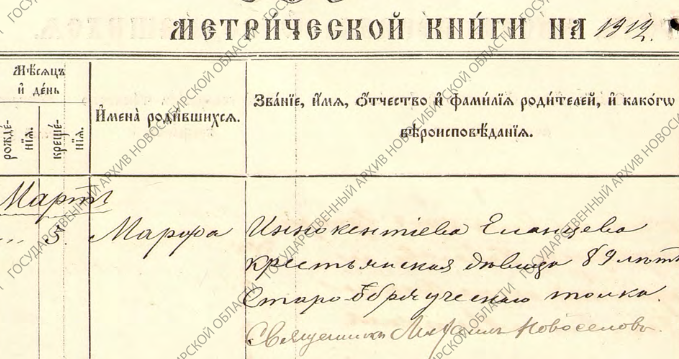 МЕТРИЧЕСКОЙ КНИГИ НА 1912.
Мѣсяцъ и день
рожденія.
крещенія.
Имена родившихся.
Званіе, имя, отчество и фамилія родителей, и какогѡ вѣроисповѣданія.
Мартъ
5
Марфа
Иннокентіева Еланцева
крестьянская дѣвица 89 лѣтъ
Старообрядческаго толка.
Священникъ Михаилъ Новоселовъ.
ГОСУДАРСТВЕННЫЙ АРХИВ НОВОСИБИРСКОЙ ОБЛАСТИ